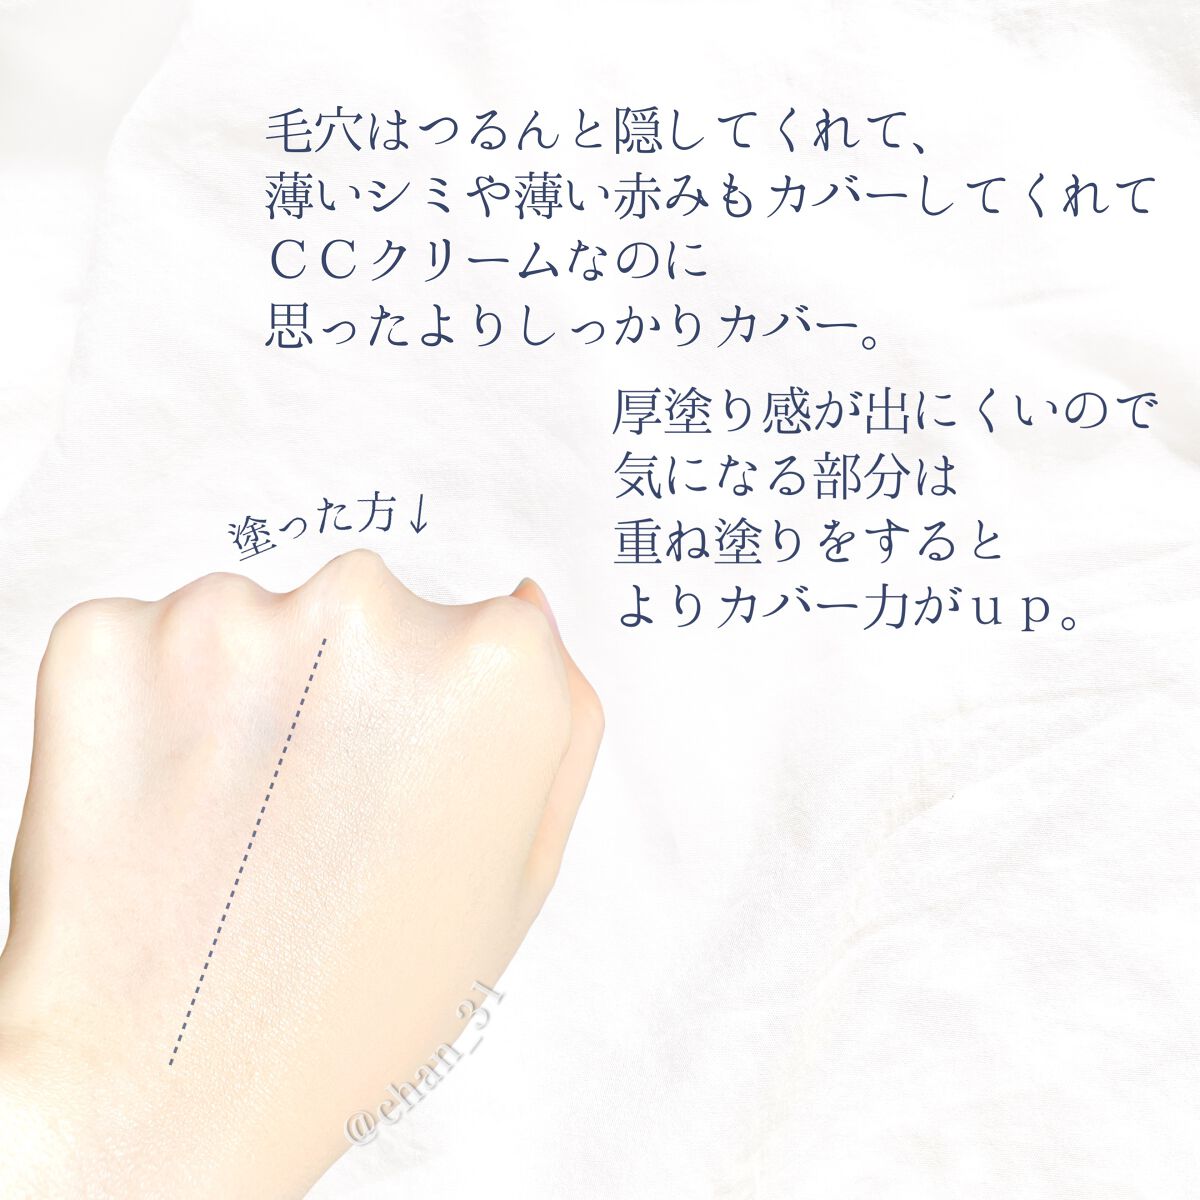 毛穴はつるんと隠してくれて、
薄いシミや薄い赤みもカバーしてくれて
ＣＣクリームなのに
思ったよりしっかりカバー。
厚塗り感が出にくいので
気になる部分は
重ね塗りをすると
よりカバー力がｕｐ。
塗った方↓
@chan_31